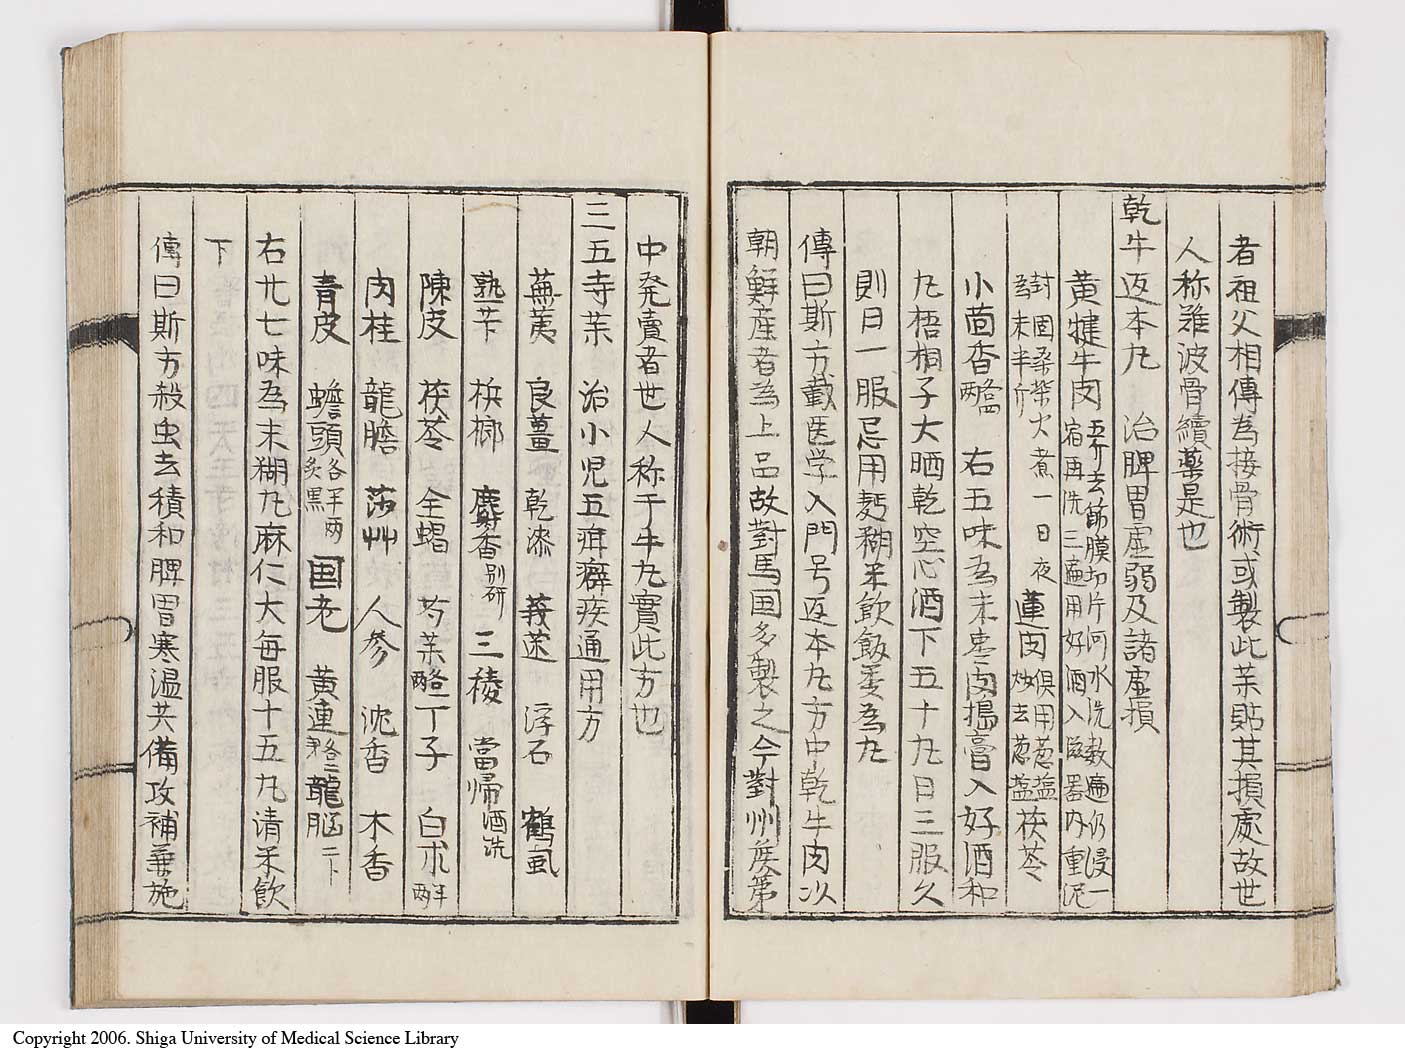 者祖父相傳為接骨術或製此茉貼其損處故世
人称難波骨續薬是也
乾牛返本丸 治脾胃虛弱及諸虛損
黄犍牛肉 去筋膜切片河水洗数遍仍浸一
宿再洗三遍用好酒入磁器内重泥
封固桑柴火煮一日夜
為末半斤
蓮肉 俱用葱盐
炒去葱盐
茯苓
小茴香 右五味為末枣肉搗膏入好酒和
丸梧桐子大晒乾空心酒下五十丸日三服久
則日一服忌用麪糊米飲飯委為丸
傳曰斯方載医学入門号返本丸方中乾牛肉以
朝鮮産者為上品故對馬国多製之今對州族第
中発賣者世人称于牛丸實此方也
三五寺茉 治小児五疳癖疾通用方
蕪荑 良薑 乾漆 莪迷 浮石 鶴虱
熟苄 梹榔 麝香别研 三稜 當帰酒洗
陳皮 茯苓 全蝎 芍茉 丁子 白朮
肉桂 龍膽 莎艸 人参 沈香 木香
青皮 蟾頭各半兩
炙黒 国老 黄連 龍脳
右廿七味為末糊丸麻仁大每服十五丸清米飲
下
傳曰斯方殺虫去積和脾胃寒温共備攻補兼施
Copyright 2006. Shiga University of Medical Science Library